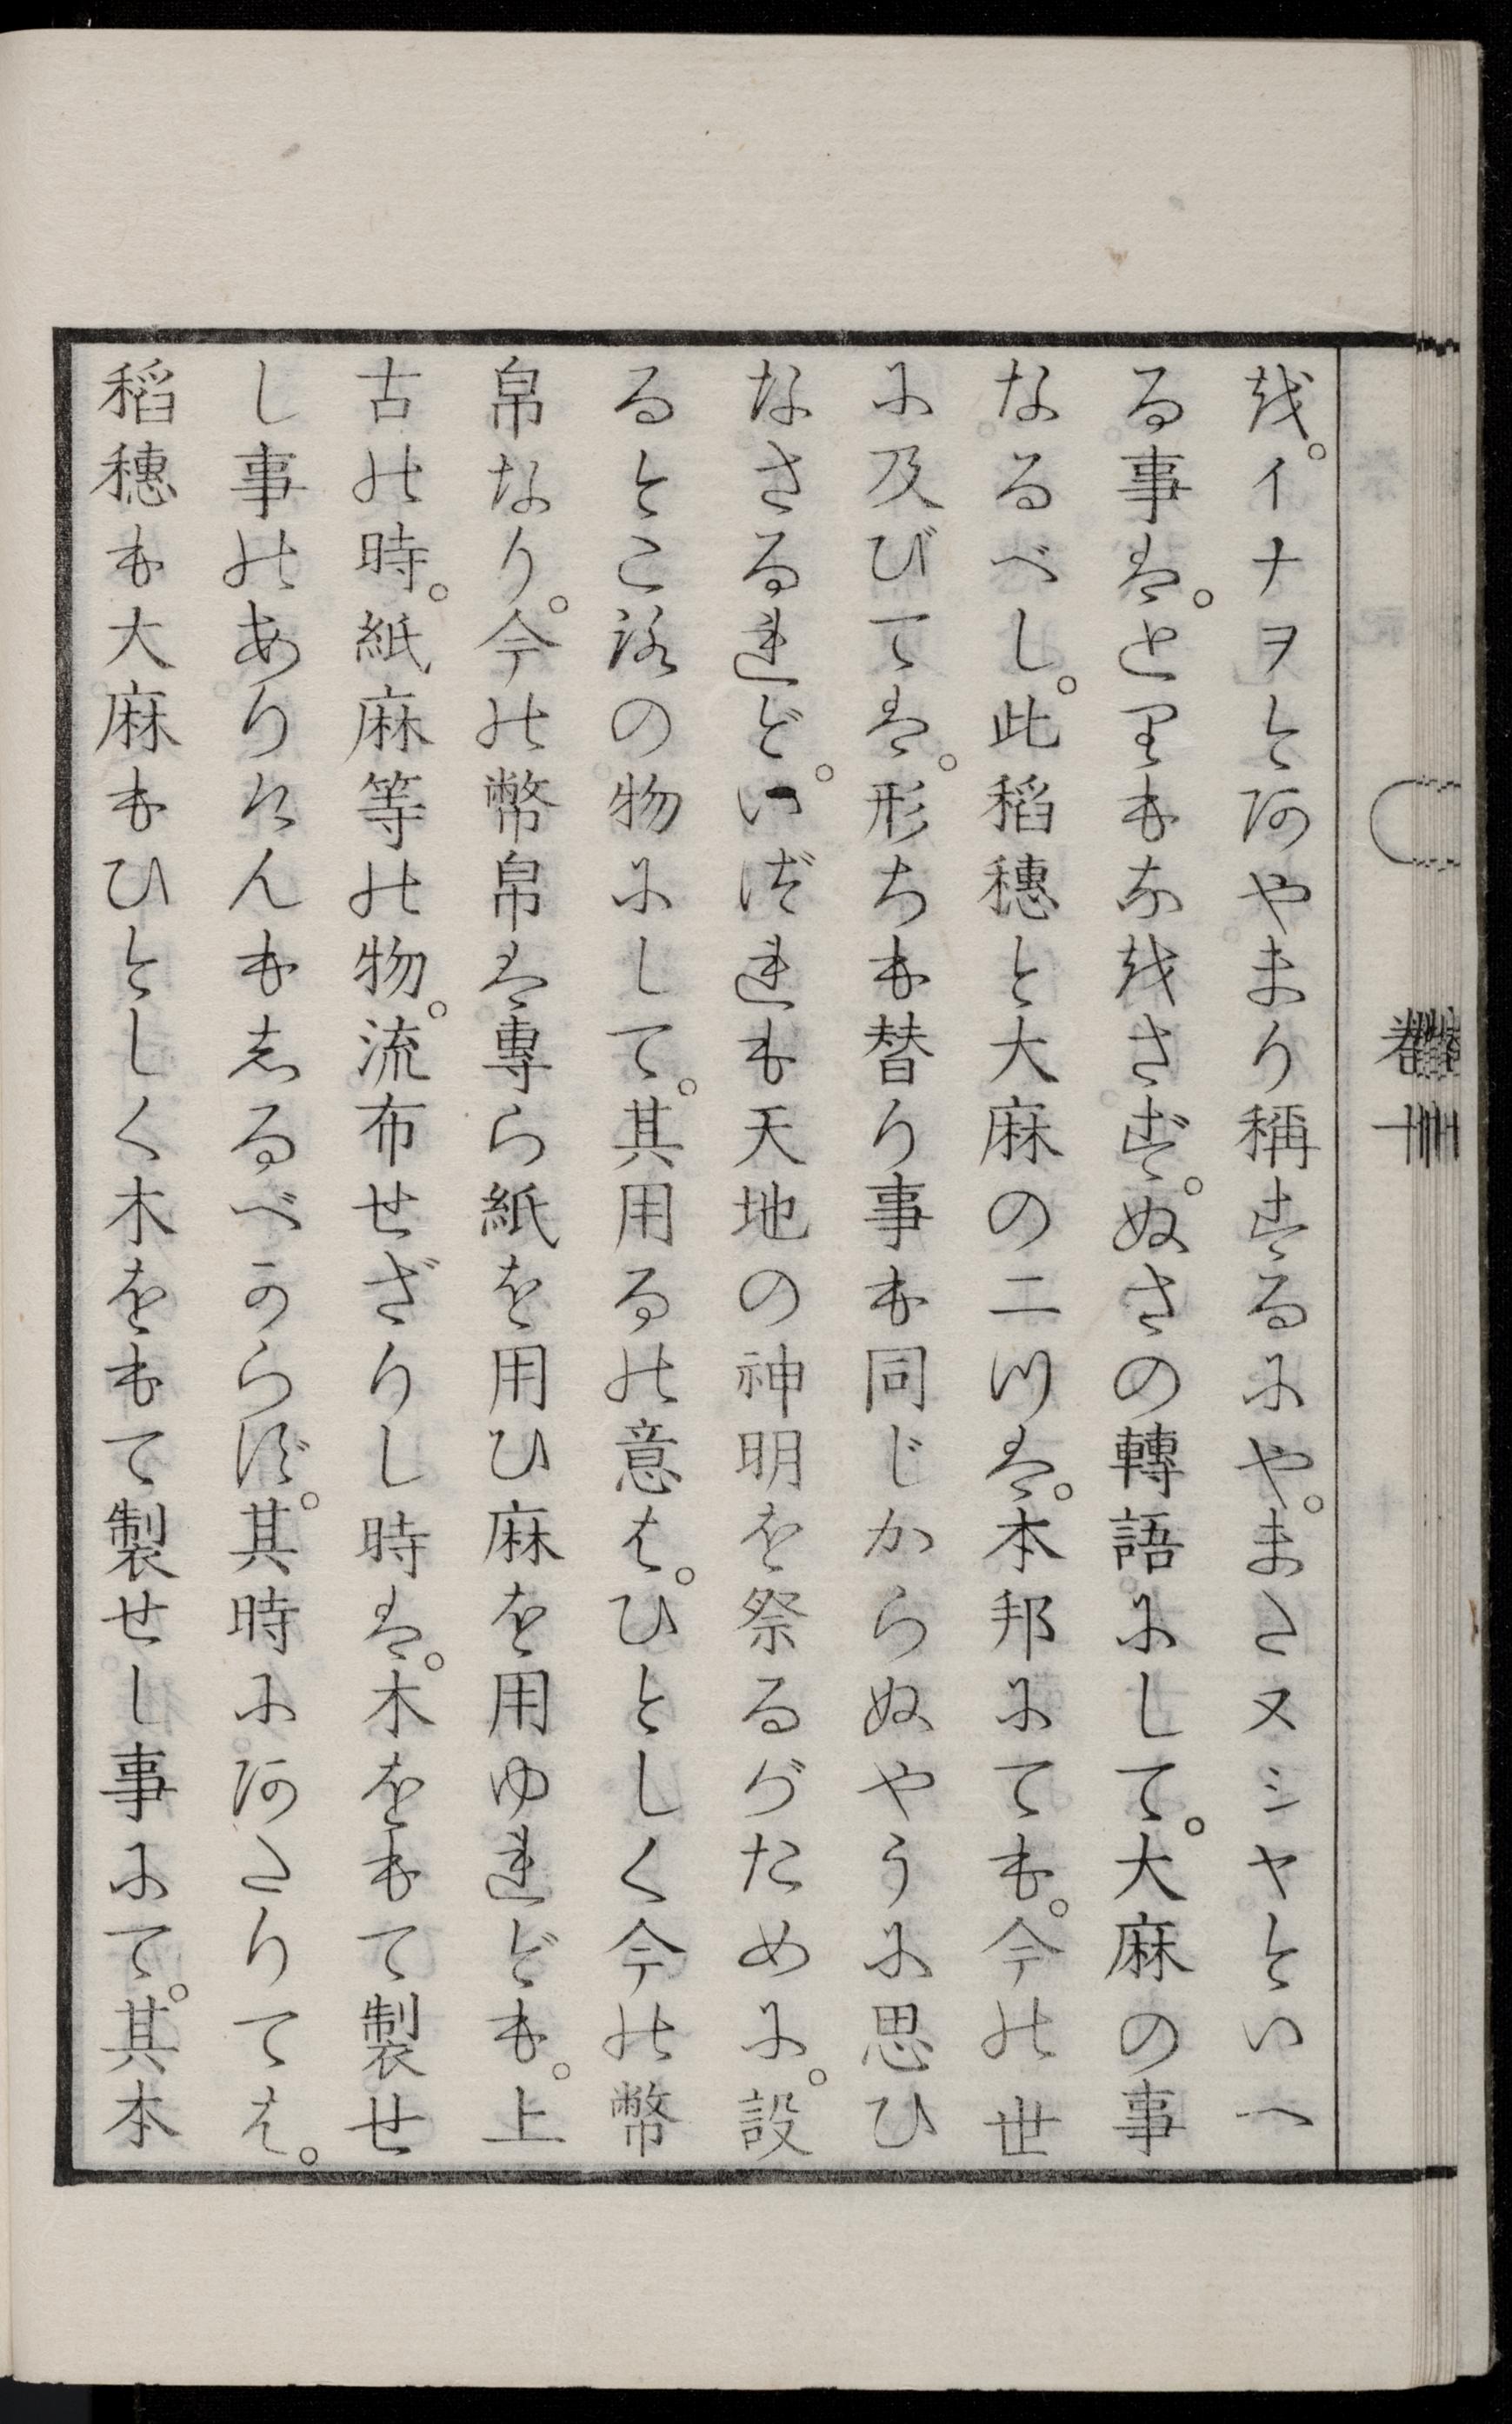 を。イナヲとあやまり稱するにや。またヌシヤといへ
る事は。とりもなをさず。ぬさの轉語にして。大麻の事
なるべし。此稻穗と大麻の二つは。本邦にても。今の世
に及びては。形ちも替り事も同じからぬやうに思ひ
なさるれど。いづれも天地の神明を祭るがために。設
るところの物にして。其用るの意は。ひとしく今の幣
帛なり。今の幣帛は專ら紙を用ひ麻を用ゆれども。上
古の時。紙麻等の物。流布せざりし時は。木をもて製せ
し事のありけんもしるべからず。其時にあたりては。
稻穗も大麻もひとしく木をもて製せし事にて。其本